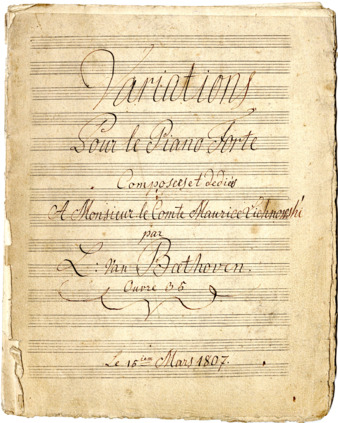 Variations
Pour le Piano Forte
Composées et dediés
A Monsieur le Comte Maurice Lichnowski
par
L: van Beethoven.
Œuvre 35
Le 15ten Mars 1807.